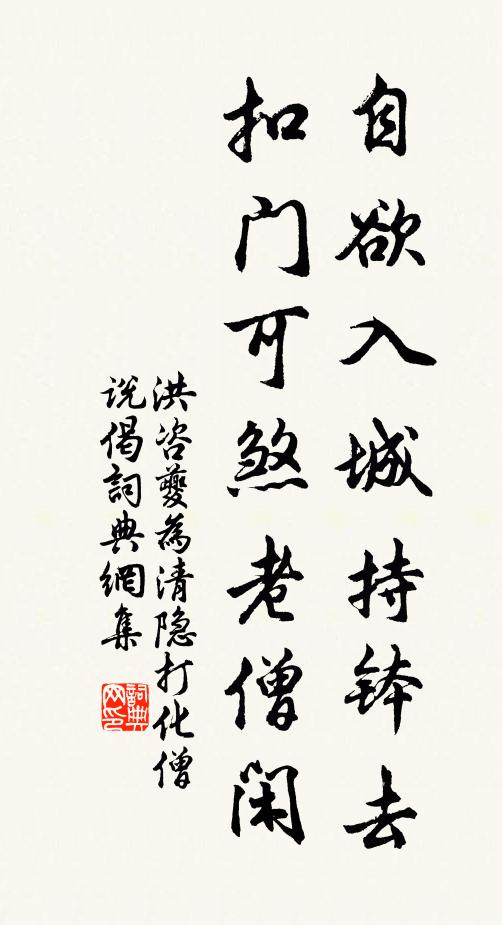 自欲入城持钵去
扣门可煞老僧闲
洪咨夔為清隐打化僧
说偈詞典網集
詞典
网印